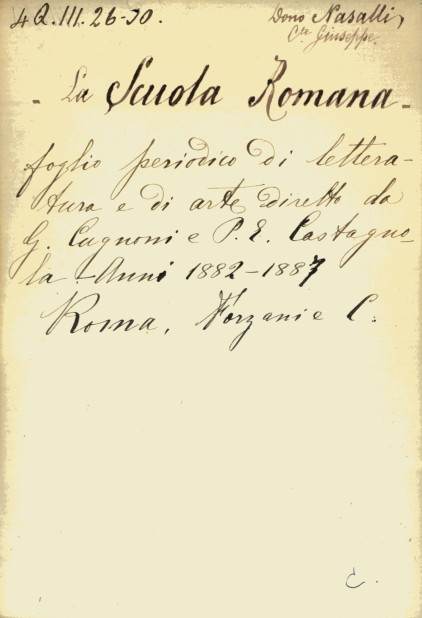 4Q.III.26-30.
Dono Nasalli,
Cte Giuseppe.
- La Scuola Romana -
foglio periodico di lettera-
tura e di arte diretto da
G. Cugnoni e P. E. Castagno-
la - Anni 1882-1887
Roma, Forzani e C.
C.